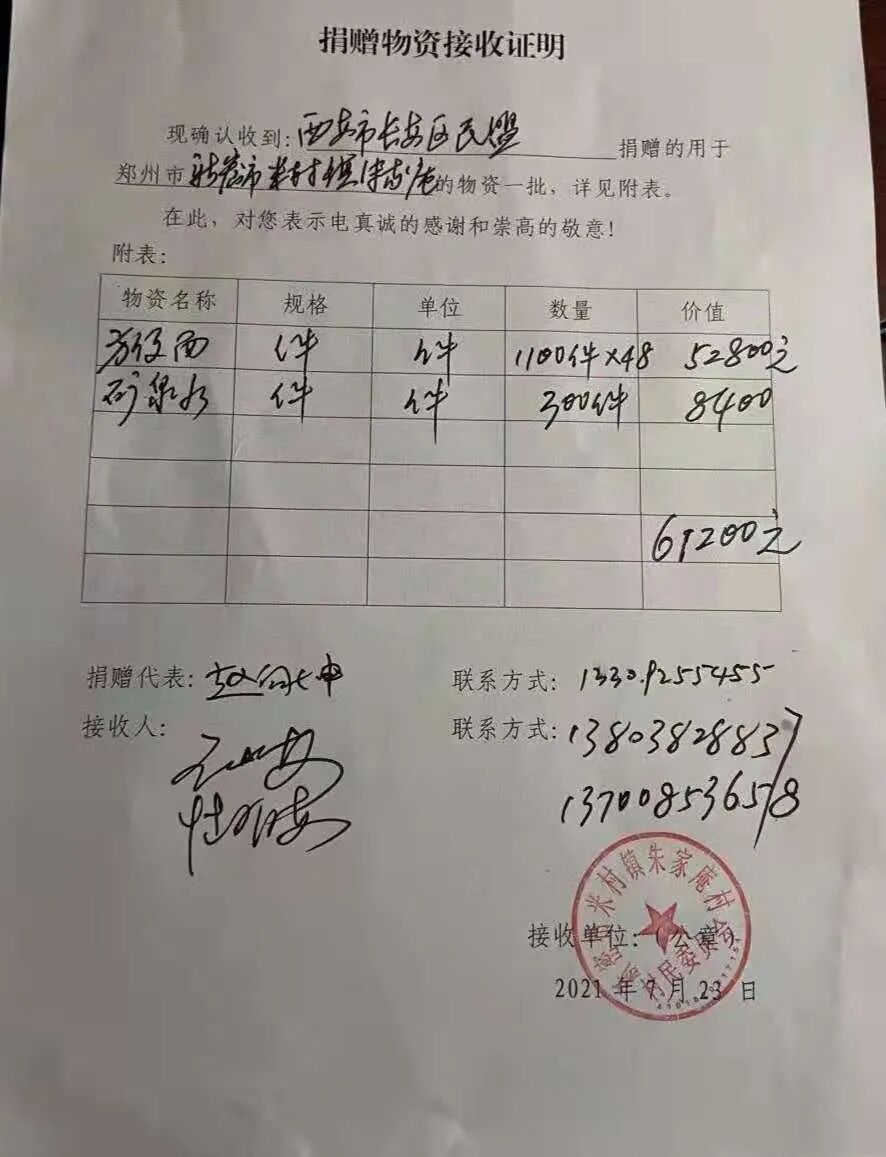 捐赠物资接收证明
现确认收到:西安市长安区民盟捐赠的用于
郑州市新密市米村镇朱家庵的物资一批，详见附表。
在此，对您表示电真诚的感谢和崇高的敬意!
附表:
物资名称 规格 单位 数量 价值
方便面 件 件 1100件×48 52800元
矿泉水 件 件 300件 8400
61200元
捐赠代表: 联系方式: 13309255455
接收人: 联系方式: 13803828837
13700853658
米村镇朱家庵村
村民委员会
接收单位:（公章）
2021 年 7 月 23 日